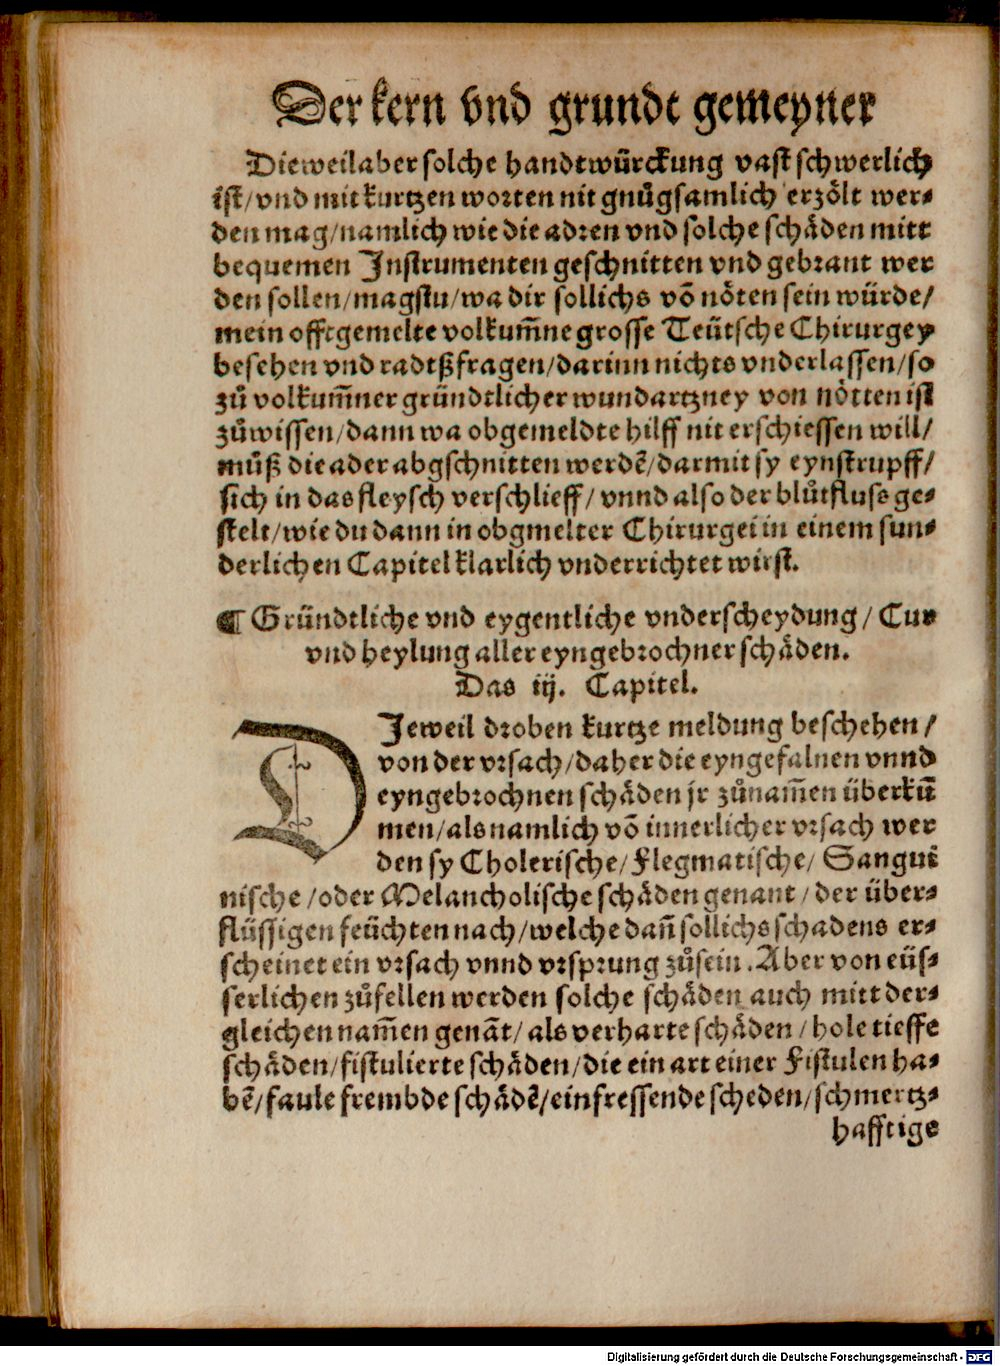 Der kern vnd grundt gemeyner
Dieweil aber solche handtwürckung vast schwerlich
ist/ vnd mit kurtzen worten nit gnůgsamlich erzölt wer⸗
den mag/ namlich wie die adren vnd solche schäden mitt
bequemen Instrumenten geschnitten vnd gebrant wer
den sollen/ magstu/ wa dir sollichs vō nöten sein würde/
mein offtgemelte volkum̄ne grosse Teütsche Chirurgey
besehen vnd radtßfragen/ darinn nichts vnderlassen/ so
zů volkum̄ner gründtlicher wundartzney von nötten ist
zůwissen/ dann wa obgemeldte hilff nit erschiessen will/
můß die ader abgschnitten werdē/ darmit sy eynstrupff/
sich in das fleysch verschlieff/ vnnd also der blůtfluss ge⸗
stelt/ wie du dann in obgmelter Chirurgei in einem sun⸗
derlichen Capitel klarlich vnderrichtet wirst.
¶ Gründtliche vnd eygentliche vnderscheydung/ Cur
vnd heylung aller eyngebrochner schäden.
Das iij. Capitel.
DJeweil droben kurtze meldung beschehen/
von der vrsach/ daher die eyngefalnen vnnd
eyngebrochnen schäden jr zůnam̄en überkū
men/ als namlich vō innerlicher vrsach wer
den sy Cholerische/ Flegmatische/ Sangui
nische/ oder Melancholische schäden genant/ der über⸗
flüssigen feüchten nach/ welche dañ sollichs schadens er⸗
scheinet ein vrsach vnnd vrsprung zůsein. Aber von eüs⸗
serlichen zůfellen werden solche schäden auch mitt der⸗
gleichen nam̄en genāt/ als verharte schäden/ hole tieffe
schäden/ fistulierte schäden/ die ein art einer Fistulen ha⸗
bē/ faule frembde schädē/ einfressende scheden/ schmertz⸗
hafftige
Digitalisierung gefördert durch die Deutsche Forschungsgemeinschaft - DFG